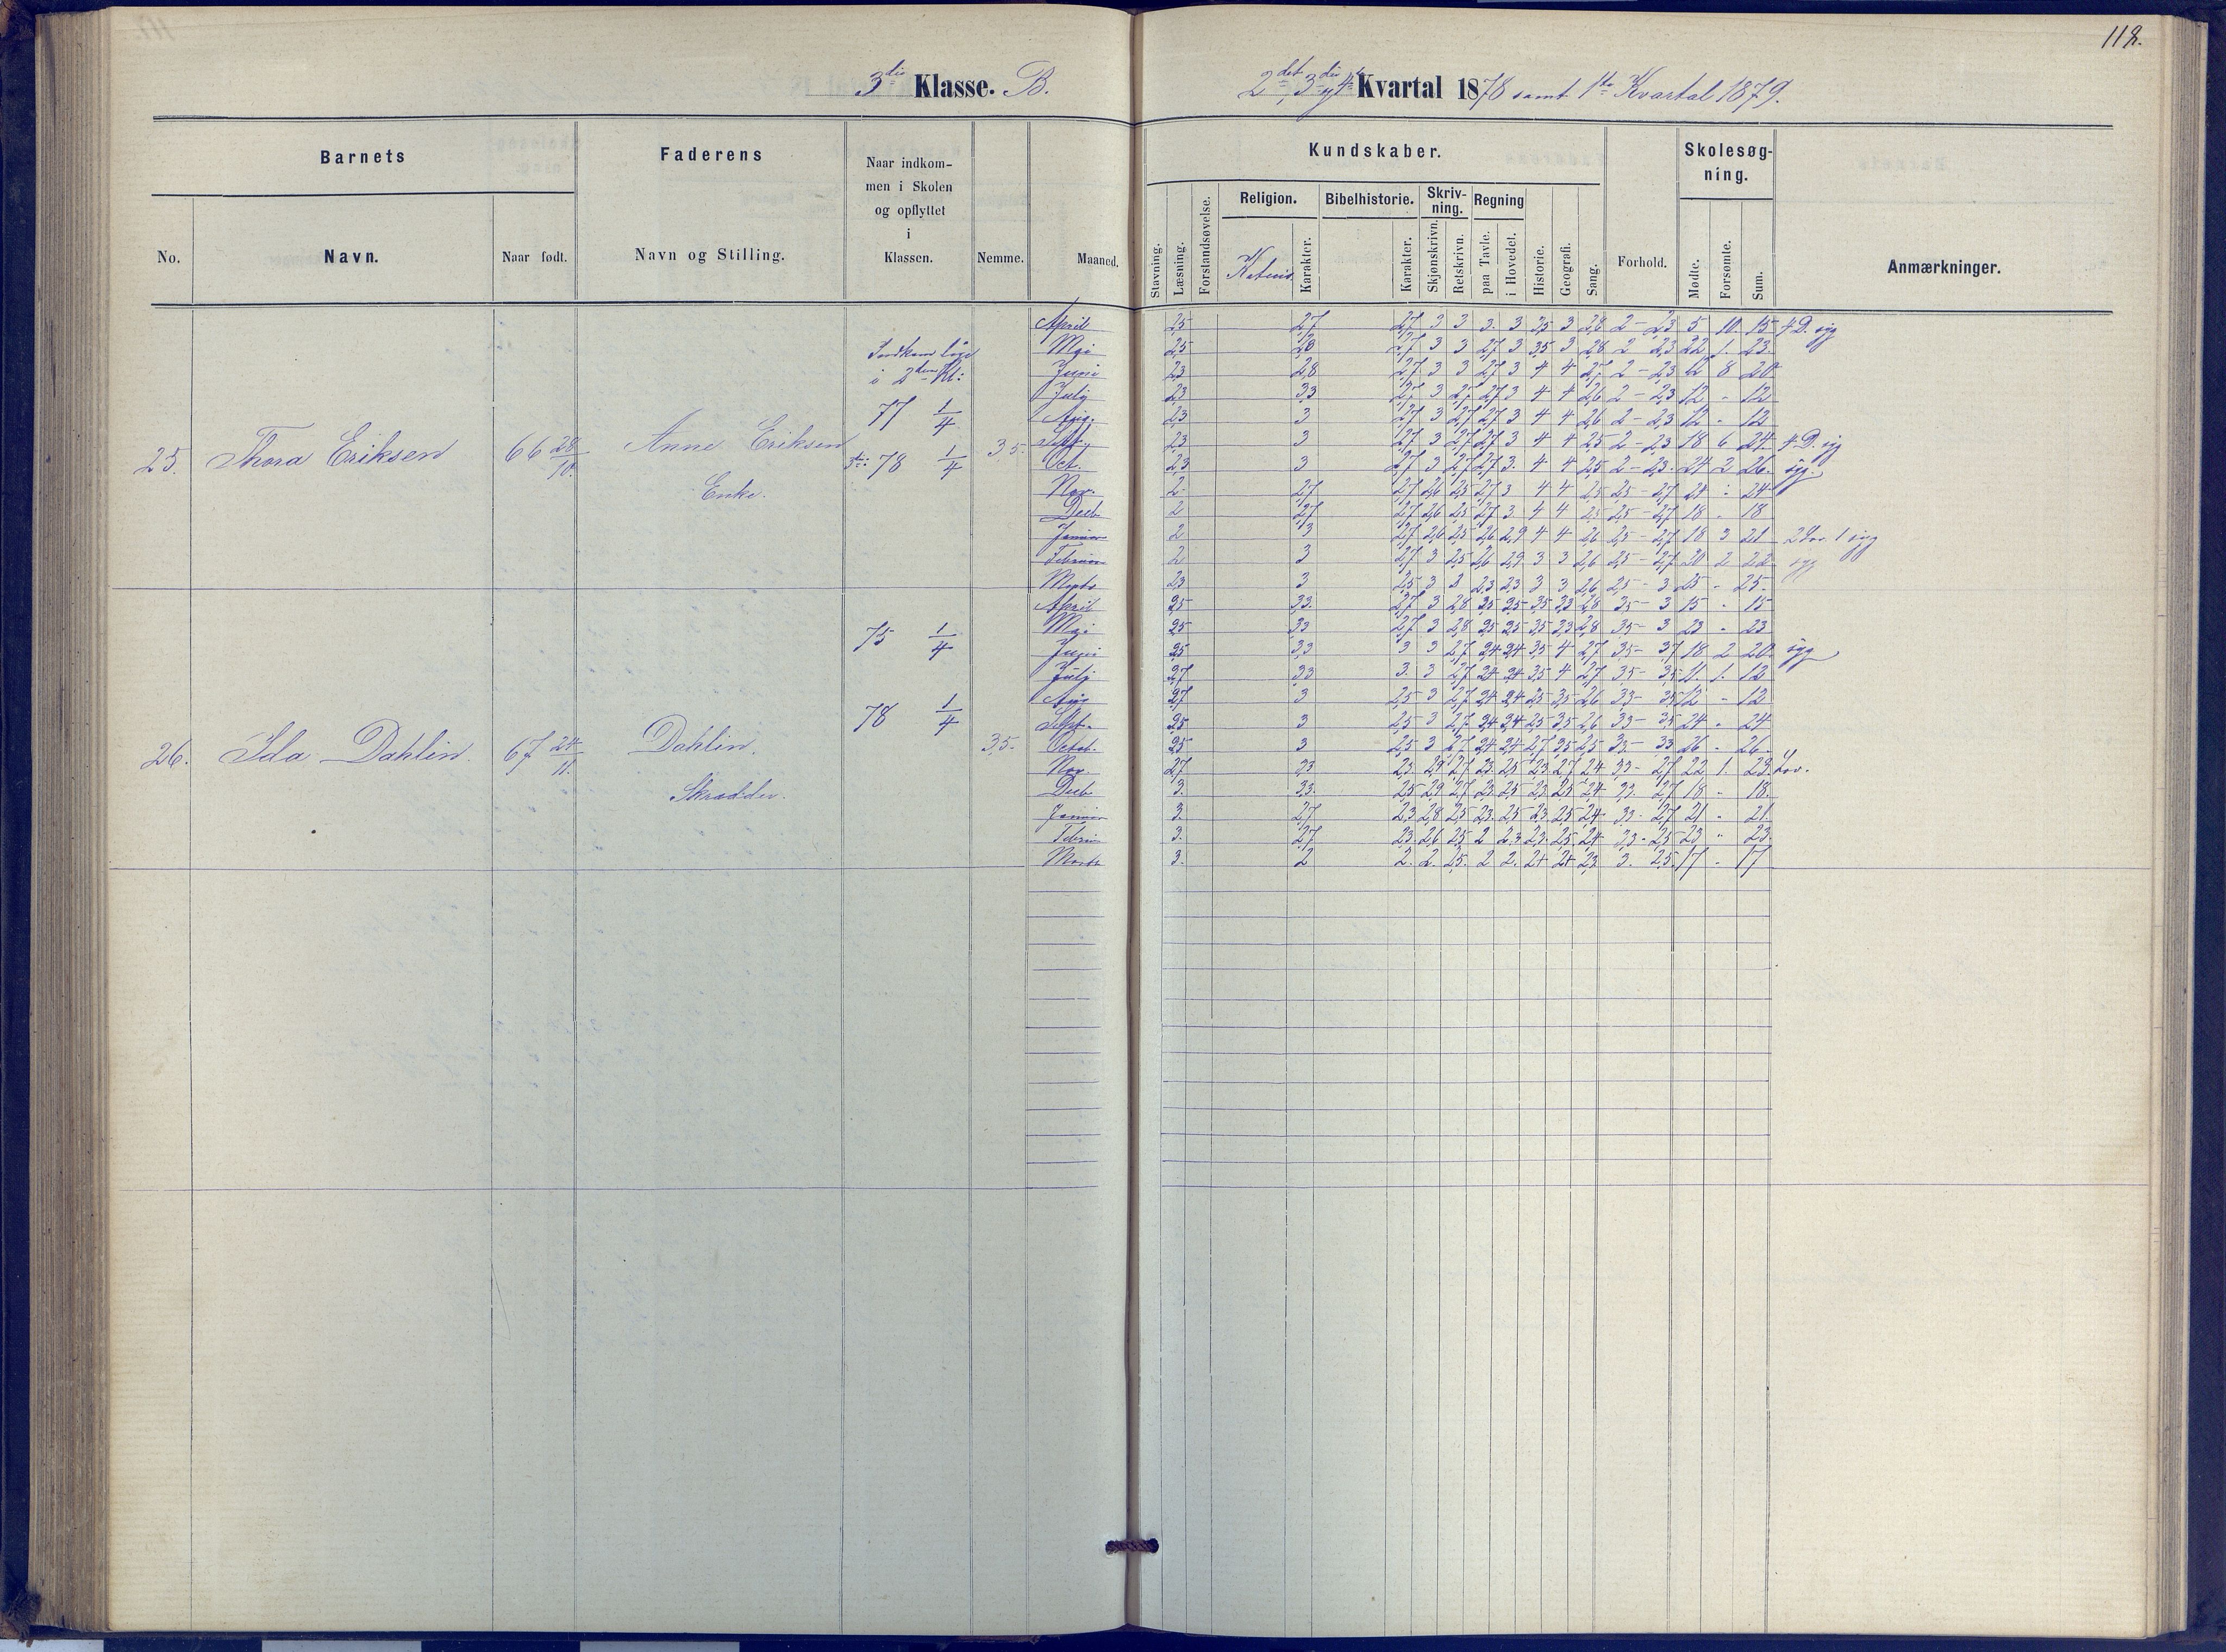 112.
3die Klasse. B.
2det, 3die og 4de Kvartal 1878 samt 1ste Kvartal 1879.
Barnets
Faderens
Naar indkom-
men i Skolen
og opflyttet
i
Klassen.
Kundskaber.
Skolesøg-
ning.
Religion. Bibelhistorie. Skriv-
ning. Regning
No. Navn. Naar født. Navn og Stilling. Nemme. Maaned.
Stavning. Læsning. Forstandsøvelse. Karakter. Karakter. Skjønskrivn. Retskrivn. paa Tavle. i Hovedet. Historie. Geografi. Sang. Forhold. Mødte. Forsømte. Sum. Anmærkninger.
25. Thora Eriksen 66 28/10. Anne Eriksen
Enke.
i 2den Kl:
77 1/4
78 1/4
3,5
April 2,5 2,7 2,7 3 3 3. 3 3,5 3 2,8 2 - 2,3 5 10 15 4 D. syg
Mai 2,5 2,7 3 3 2,7 3 3,5 3 2,8 2 - 2,3 22 1. 23.
Juni 2,3 2,8 2,7 3 3 2,7 3 4 4 2,7 2 - 2,3 12 8 20
Juli 2,3 3,3 2,7 3 2,7 2,7 3 4 4 2,6 2 - 2,3 12 - 12
Aug. 2,3 3 2,7 3 2,7 2,7 3 4 4 2,6 2 - 2,3 12 - 12
Sept. 2,3 3 2,7 3 2,7 2,7 3 4 4 2,5 2 - 2,3 18 6 24 4 D. syg
Oct. 2,3 3 2,7 3 2,7 2,7 3. 4 4 2,5 2 - 2,3. 24 2 26. syg.
Nov. 2 2,7 2,7 2,6 2,5 2,7 3 4 4 2,5 2,5 - 2,7 24 - 24
Decb 2 2,7 2,7 2,6 2,5 2,7 3. 4 4 2,5 2,5 - 2,7 18 - 18
Januar 2 3 2,7 2,6 2,5 2,6 2,9 4 4 2,6 2,5 - 2,7 18 3 21 2 Lov. 1 syg
Februar 2 3 2,7 3 2,5 2,6 2,9 3 3 2,6 2,5 - 2,7 20 2 22 syg
Marts 2,3 3 2,5 3 3 2,3 2,3 3 3 2,6 2,5 - 3 25 - 25.
26. Ida Dahlin. 67 24/11. Dahlin.
Skrædder.
75 1/4
78 1/4
3,5.
April 3,3. 2,7 3 2,8 3,5 3,3 2,8 3,5 - 3 15 - 15
Mai 3,3 2,7 3 2,8 3,5 3,3 2,8 3,5 - 3 23 - 23
Juni 3,3 3 3 2,7 2,4 2,4 3,5 4 2,7 3,5 - 3,7 18 2 20 syg
Juli 3,3 3. 3 2,7 2,4 2,4 3,5 4 2,7 3,5 - 3,5 11. 1. 12
Aug 3 2,5 3 2,7 2,4 2,4 2,5 3,5 2,6 3,3 - 3,5 12 - 12
Sept. 3 2,5 3 2,7 2,4 2,4 2,5 3,5 2,6 3,3 - 3,5 24 - 24
Octob. 3 2,5 3 2,7 2,4 2,4 2,7 3,5 2,5 3,3 - 3,3 26 - 26
Nov. 2,7 3,3 2,3 2,9 2,7 2,3 2,5 2,3 2,7 2,4 3,3 - 2,7 22 1. 23. Lov.
Decb 3. 3,3. 2,5 2,9 2,7 2,3 2,5 2,3 2,5 2,4 3,3. 2,7 18 - 18.
Januar 3. 2,7 2,3 2,8 2,5 2,3 2,5 2,3 2,5 2,4 3,3 - 2,7 21 - 21.
Februar 3. 2,7 2,3 2,6 2,5 2 2,3 2,3 2,5 2,4 3,3 - 2,5 23 - 23.
Marts 3. 2 2. 2. 2,5. 2 2. 2,4 2,4 2,3 3. 2,5. 17 - 17